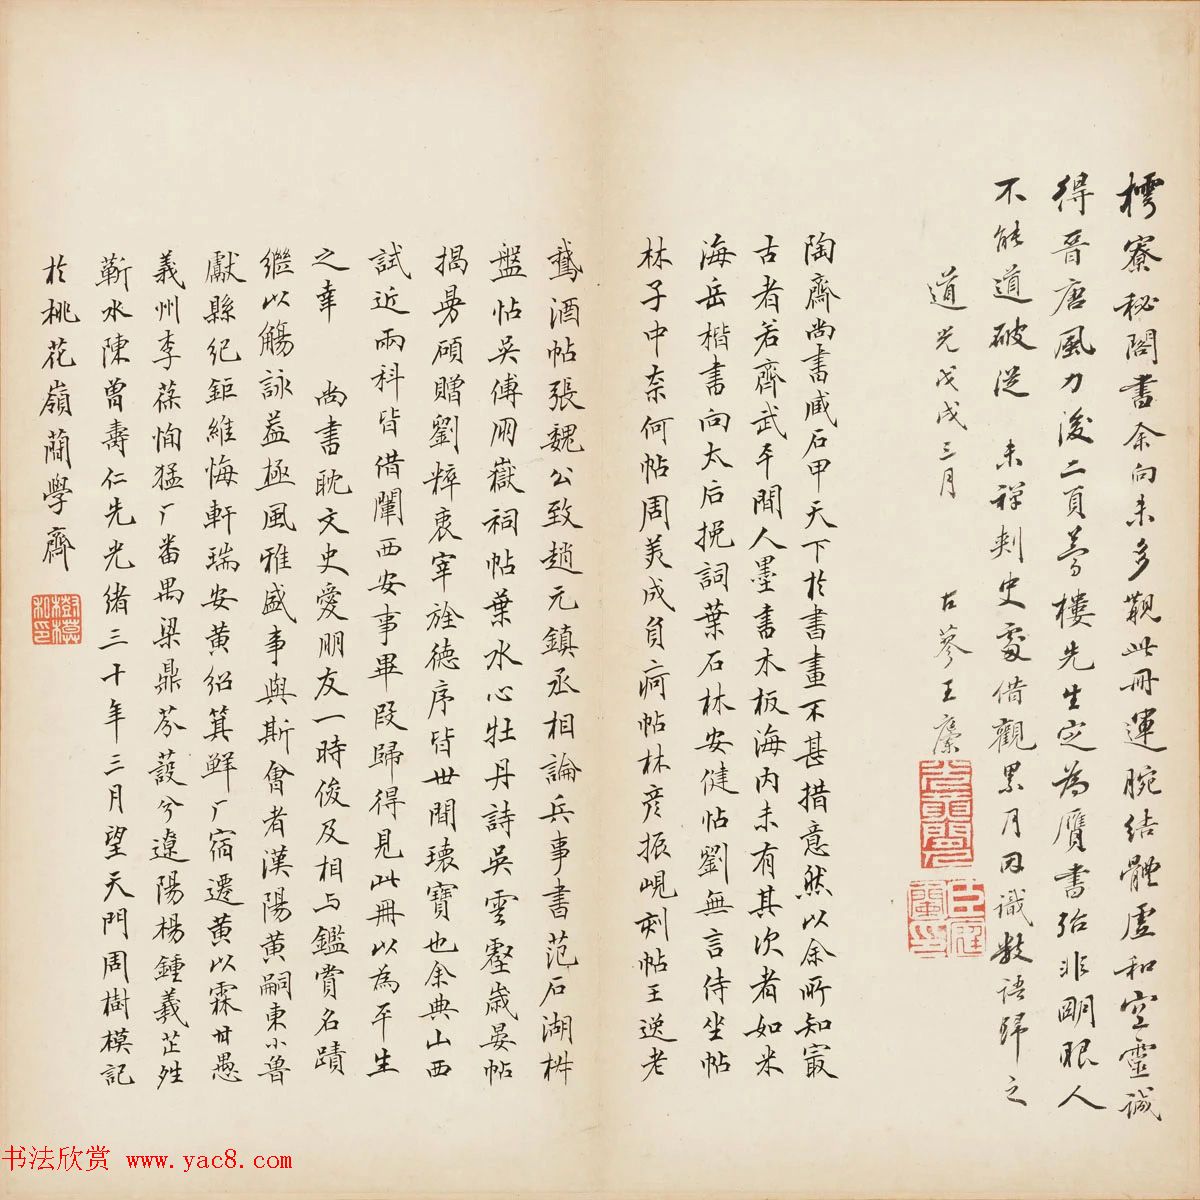 樗寮秘閣書余向未多觀此冊運腕結體虛和空靈誠
得晉唐風力後二頁夢樓先生定為贋書殆非明眼人
不能道破從 未禪刺史處借觀累月因識數語歸之
道光戊戌三月 古蓼王
陶齋尚書臧石甲天下於書畫不甚措意然以余所知㝡
古者若齊武平間人墨書木板海内未有其次者如米
海岳楷書向太后挽詞葉石林安健帖劉無言侍坐帖
林子中奈何帖周美成負痾帖林彥振峴刻帖王逸老
鵞酒帖張魏公致趙元鎮丞相論兵事書范石湖桝
盤帖吳傅朋嶽祠帖葉水心牡丹詩吳雲壑歲晏帖
揭曼碩贈劉粹衷宰旌德序皆世間瓌寶也余典山西
試近兩科皆借闈西安事畢段歸得見此冊以為平生
之幸 尚書耽文史愛朋友一時俊及相与鑑賞名蹟
繼以觴詠益極風雅盛事與斯會者漢陽黃嗣東小魯
獻縣紀鉅維悔軒瑞安黃紹箕鮮厂宿遷黃以霖甘愚
義州李葆恂猛厂番禺梁鼎芬葭兮遼陽楊鍾羲芷夝
蘄水陳曾壽仁先光緒三十年三月望天門周樹模記
於桃花嶺蕳學齋
樹模私印
书法欣赏 www.yac8.com